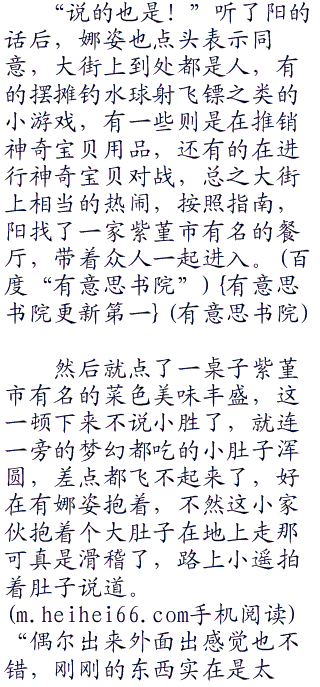 “说的也是！”听了阳的
话后，娜姿也点头表示同
意，大街上到处都是人，有
的摆摊钓水球射飞镖之类的
小游戏，有一些则是在推销
神奇宝贝用品，还有的在进
行神奇宝贝对战，总之大街
上相当的热闹，按照指南，
阳找了一家紫堇市有名的餐
厅，带着众人一起进入。(百
度“有意思书院”) {有意思
书院更新第一} (有意思书院)
然后就点了一桌子紫堇
市有名的菜色美味丰盛，这
一顿下来不说小胜了，就连
一旁的梦幻都吃的小肚子浑
圆，差点都飞不起来了，好
在有娜姿抱着，不然这小家
伙抱着个大肚子在地上走那
可真是滑稽了，路上小遥拍
着肚子说道。
(m.heihei66.com手机阅读)
“偶尔出来外面出感觉也不
错，刚刚的东西实在是太